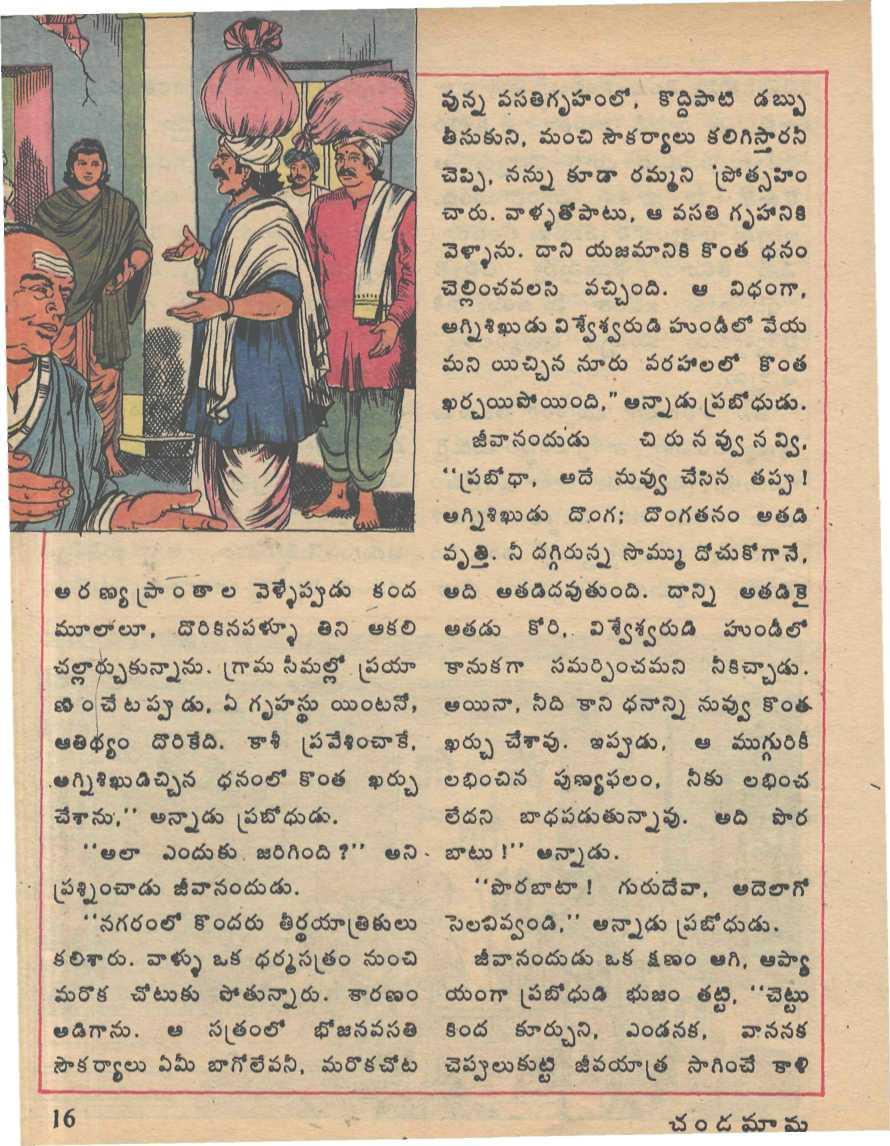 అరణ్యప్రాంతాల వెళ్ళేప్పుడు కంద
మూలాలూ, దొరికినపళ్ళూ తిని ఆకలి
చల్లార్చుకున్నాను. గ్రామ సీమల్లో ప్రయా
ణించేటప్పుడు, ఏ గృహస్థు యింటనో,
ఆతిథ్యం దొరికేది. కాశీ ప్రవేశించాకే,
అగ్నిశిఖుడిచ్చిన ధనంలో కొంత ఖర్చు
చేశాను,'' అన్నాడు ప్రబోధుడు.
''అలా ఎందుకు జరిగింది ?'' అని
ప్రశ్నించాడు జీవానందుడు.
''నగరంలో కొందరు తీర్థయాత్రికులు
కలిశారు. వాళ్ళు ఒక ధర్మసత్రం నుంచి
మరొక చోటుకు పోతున్నారు. కారణం
అడిగాను. ఆ సత్రంలో భోజనవసతి
సౌకర్యాలు ఏమీ బాగోలేవనీ, మరొకచోట
వున్న వసతిగృహంలో, కొద్దిపాటి డబ్బు
తీసుకుని, మంచి సౌకర్యాలు కలిగిస్తారనీ
చెప్పి, నన్ను కూడా రమ్మని ప్రోత్సహిం
చారు. వాళ్ళతోపాటు, ఆ వసతి గృహానికి
వెళ్ళాను. దాని యజమానికి కొంత ధనం
చెల్లించవలసి వచ్చింది. ఆ విధంగా,
అగ్నిశిఖుడు విశ్వేశ్వరుడి హుండీలో వేయ
మని యిచ్చిన నూరు వరహాలలో కొంత
ఖర్చయిపోయింది,'' అన్నాడు ప్రబోధుడు.
జీవానందుడు చిరునవ్వు నవ్వి,
''ప్రబోధా, అదే నువ్వు చేసిన తప్పు !
అగ్నిశిఖుడు దొంగ; దొంగతనం అతడి
వృత్తి. నీ దగ్గిరున్న సొమ్ము దోచుకోగానే,
అది అతడిదవుతుంది. దాన్ని అతడికై
అతడు కోరి, విశ్వేశ్వరుడి హుండీలో
కానుకగా సమర్పించమని నీకిచ్చాడు.
అయినా, నీది కాని ధనాన్ని నువ్వు కొంత
ఖర్చు చేశావు. ఇప్పుడు, ఆ ముగ్గురికీ
లభించిన పుణ్యఫలం, నీకు లభించ
లేదని బాధపడుతున్నావు. అది పొర
బాటు !'' అన్నాడు.
''పొరబాటా ! గురుదేవా, అదెలాగో
సెలవివ్వండి,'' అన్నాడు ప్రబోధుడు.
జీవానందుడు ఒక క్షణం ఆగి, ఆప్యా
యంగా ప్రబోధుడి భుజం తట్టి, ''చెట్టు
కింద కూర్చుని, ఎండనక, వాననక
చెప్పులుకుట్టి జీవయాత్ర సాగించే కాళి
16
చందమామ